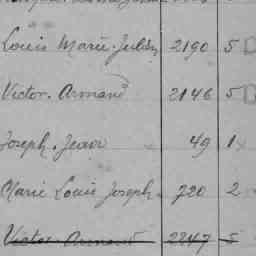 Louis Marie Julien 2190 5
Victor Armand 2146 5
Joseph Jean 49 1
Marie Louis Joseph 720 2
Victor Armand 2247 5